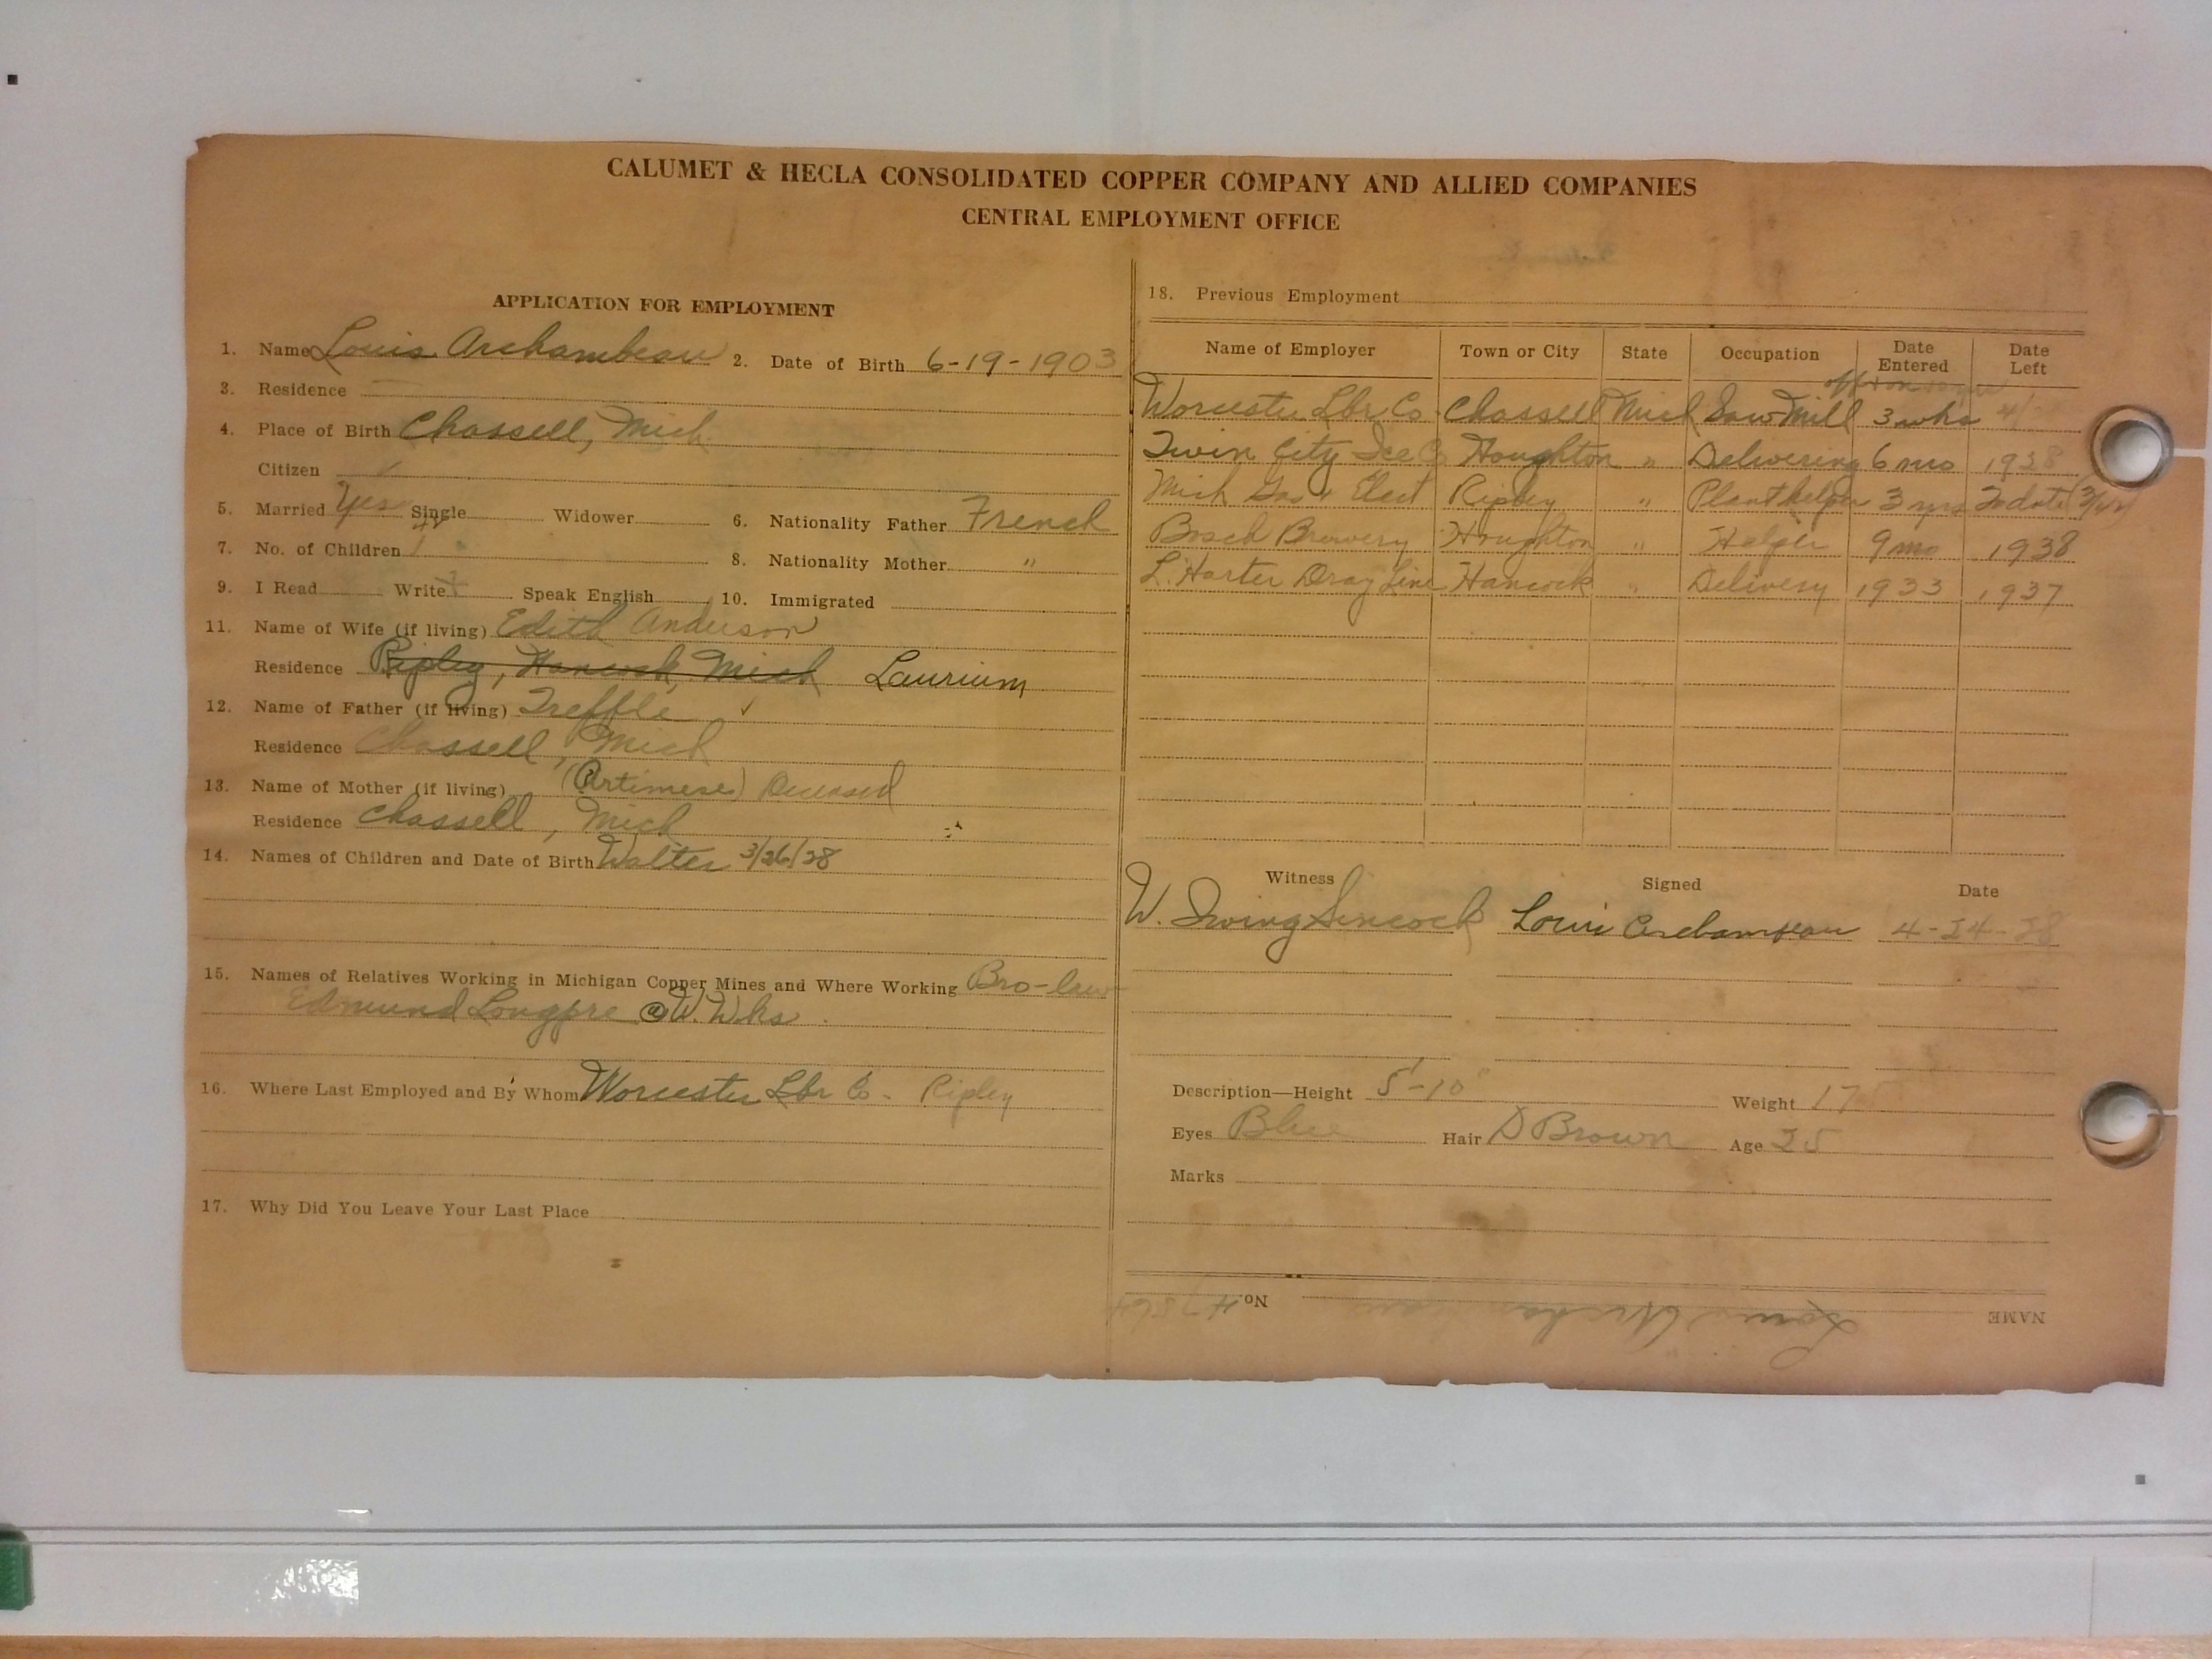 CALUMET & HECLA CONSOLIDATED COPPER COMPANY AND ALLIED COMPANIES
CENTRAL EMPLOYMENT OFFICE
APPLICATION FOR EMPLOYMENT
1. Name Louis Archambeau 2. Date of Birth 6-19-1903
3. Residence
4. Place of Birth Chassell, Mich.
Citizen
5. Married Yes Single Widower 6. Nationality Father French
7. No. of Children 8. Nationality Mother "
9. I Read Write Speak English 10. Immigrated
11. Name of Wife (if living) Edith Anderson
Residence Ripley, Hancock, Mich Laurium
12. Name of Father (if living) Treffle ✓
Residence Chassell, Mich
13. Name of Mother (if living) (Artimese) Deceased
Residence Chassell, Mich
14. Names of Children and Date of Birth Walter 3/26/28
15. Names of Relatives Working in Michigan Copper Mines and Where Working Bro-law
Edmund Longpre @ W. Wks.
16. Where Last Employed and By Whom Worcester Lbr Co. Ripley
17. Why Did You Leave Your Last Place
18. Previous Employment
Name of Employer Town or City State Occupation Date Entered Date Left
off + on
Worcester Lbr Co. Chassell Mich Saw Mill 3 wks 4/
Twin City Ice Co Houghton " Delivering 6 mo 1928
Mich Gas & Elect Ripley " Plant helper 3 yrs To date
Bosch Brewery Houghton " Helper 9 mo 1938
L. Harter Dray Line Hancock " Delivery 1933 1937
Witness Signed Date
W. Irving Sincock Louis Archambeau 4-24-28
Description—Height 5'-10" Weight 175
Eyes Blue Hair D Brown Age 25
Marks
NAME Louis Archambeau No.